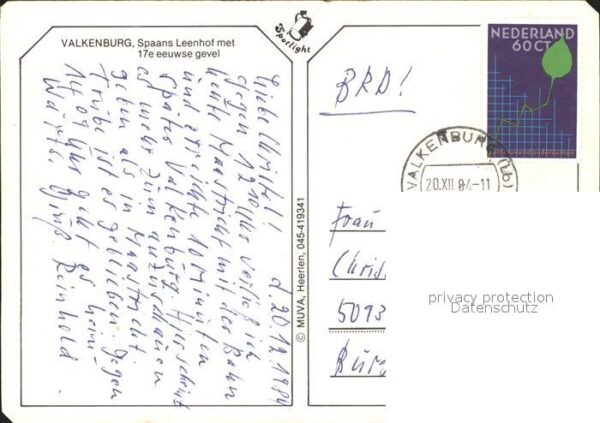 VALKENBURG, Spaans Leenhof met
17e eeuwse gevel
Sporlight
d. 20.12.1984
Liebe Christel!
Gegen 12.10 Uhr verließ ich
heute Maastricht mit der Bahn
und erreichte 10 Minuten
später Valkenburg. Hier scheint
es mehr zum anzuschauen
geben als in Maastricht.
Trübe ist es geblieben. Gegen
14.09 Uhr geht es heim-
wärts. Gruß Reinhold
© MUVA, Heerlen, 045-419341
BRD!
NEDERLAND
60 CT
VALKENBURG (Lb)
20.XII 84-11
Frau
Chris
5093
Bur
privacy protection
Datenschutz